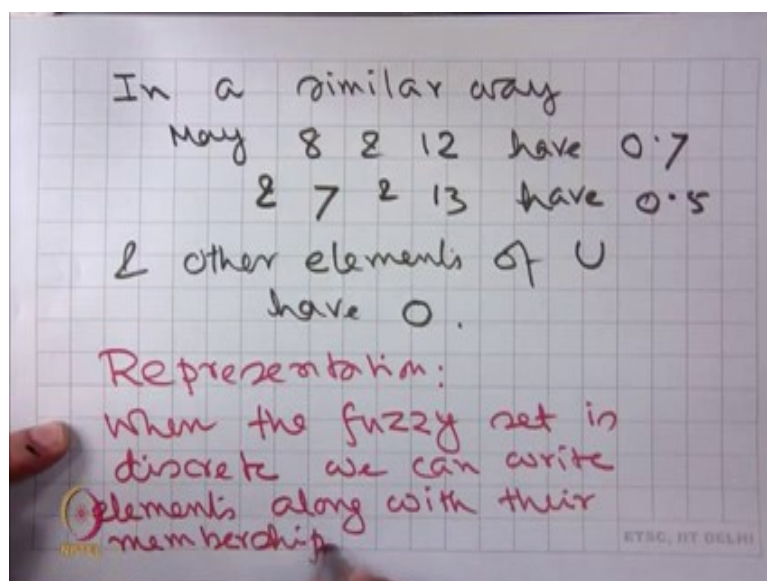 In a similar way
May 8 & 12 have 0.7
& 7 & 13 have 0.5
& other elements of U
have 0.
Representation:
When the fuzzy set is
discrete we can write
elements along with their
membership
NPTEL
ETSC, IIT DELHI